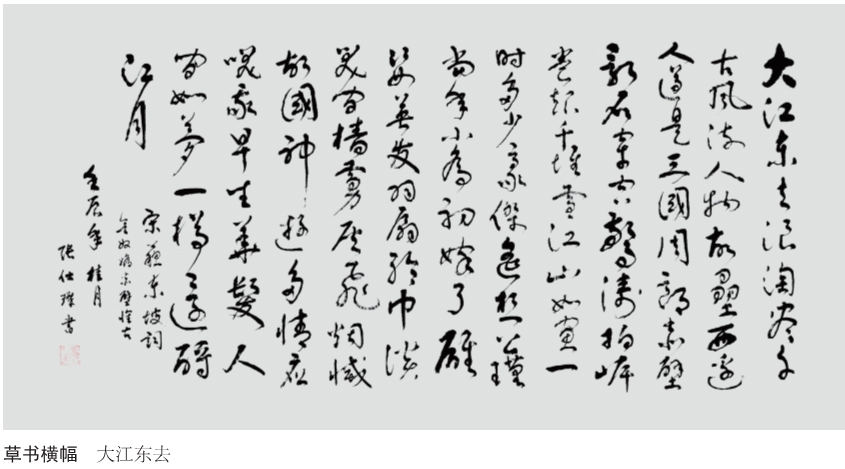 大江东去浪淘尽千
古风流人物故垒西边
人道是三國周郎赤壁
乱石穿空惊涛拍岸
卷起千堆雪江山如画一
时多少豪傑遥想公瑾
当年小乔初嫁了雄
姿英发羽扇纶巾谈
笑间樯橹灰飞烟灭
故國神游多情应
笑我早生华髮人
间如梦一樽还酹
江月
宋苏东坡词
念奴娇赤壁怀古
壬辰年桂月
张仕 书
草书横幅 大江东去